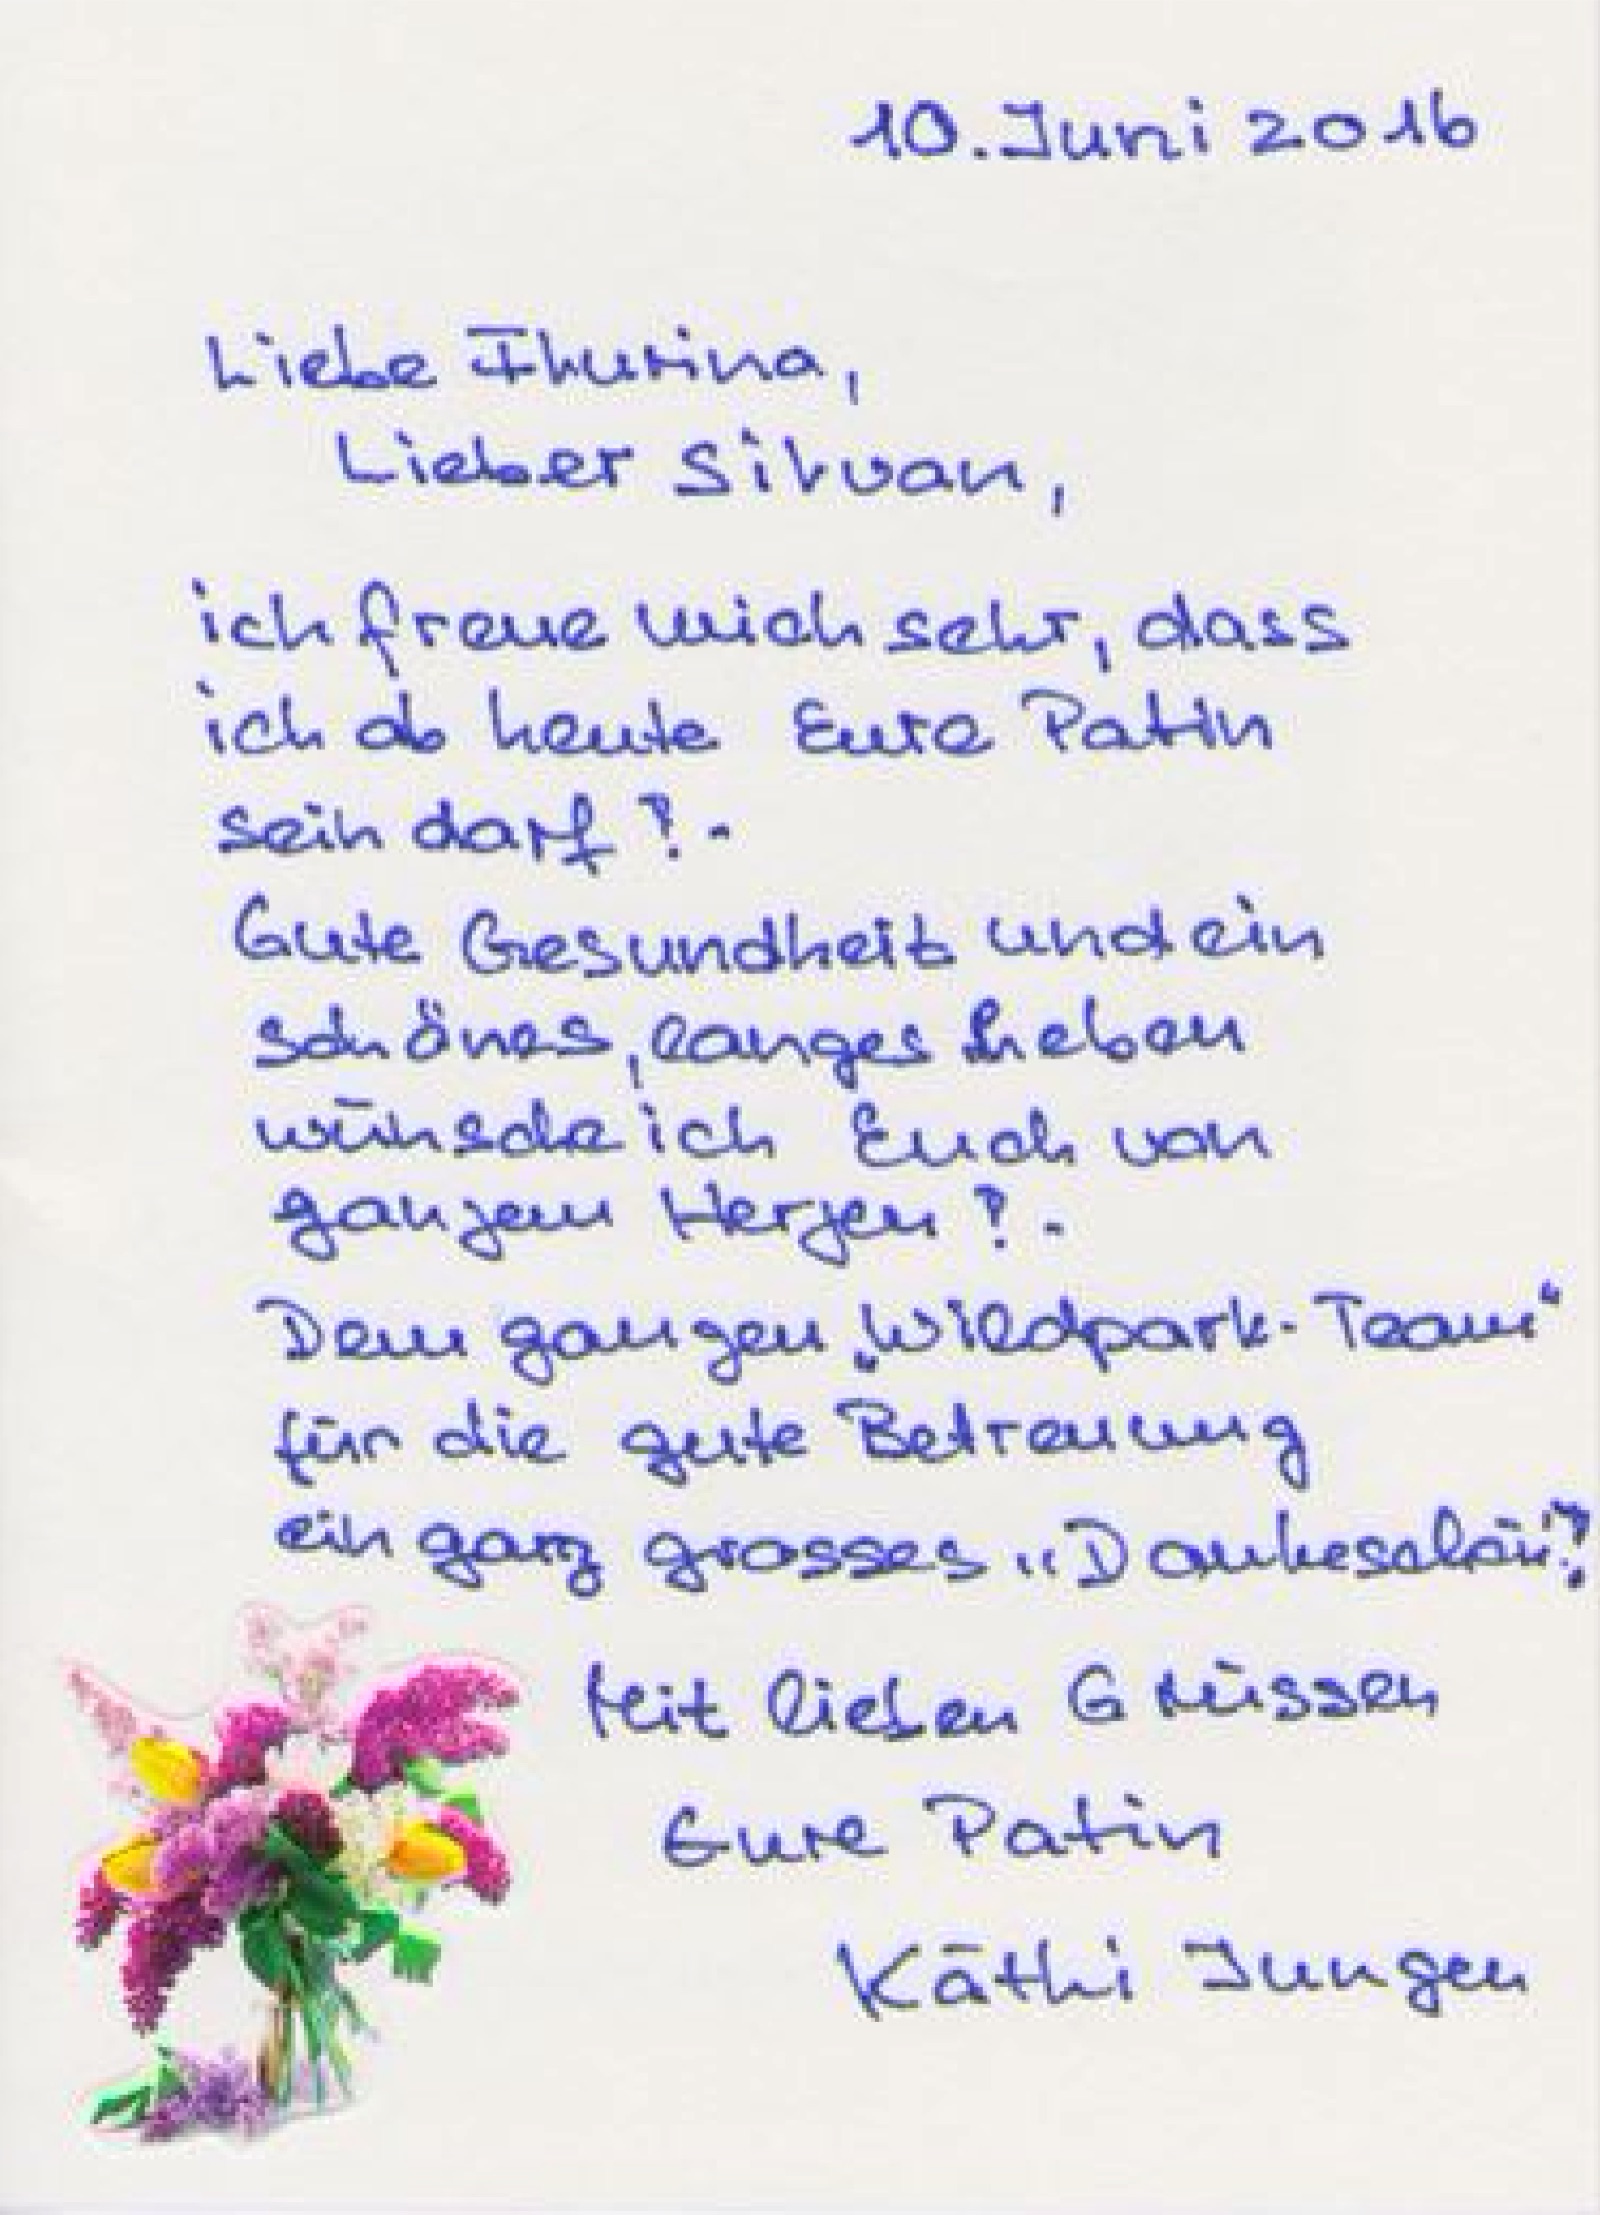 10. Juni 2016
Liebe Flurina,
Lieber Silvan,
ich freue mich sehr, dass
ich ab heute Eure Patin
sein darf!.-
Gute Gesundheit und ein
schönes, langes Leben
wünsche ich Euch von
ganzem Herzen!.-
Dem ganzen „Wildpark-Team“
für die gute Betreuung
ein ganz grosses „Dankeschön“!
Mit lieben Grüssen
Eure Patin
Käthi Jungen